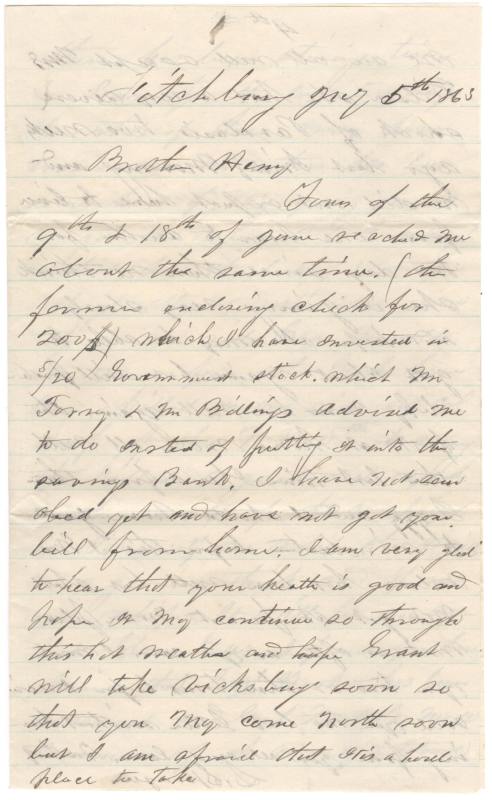 Fitchburg July 5th 1863
Brother Henry
Yours of the
9th & 18th of June reached me
about the same time. (the
former enclosing check for
200$) which I have invested in
5/20 Government stock. which Mr
Torry & Mr Billings advised me
to do insted of putting it into the
savings Bank. I have not seen
obed yet and have not got your
bill from home. I am very glad
to hear that your heath is good and
hope it my continue so through
this hot weather and hope Grant
will take Vicksburg soon so
that you my come North soon
but I am afraid that it is a hard
place to take